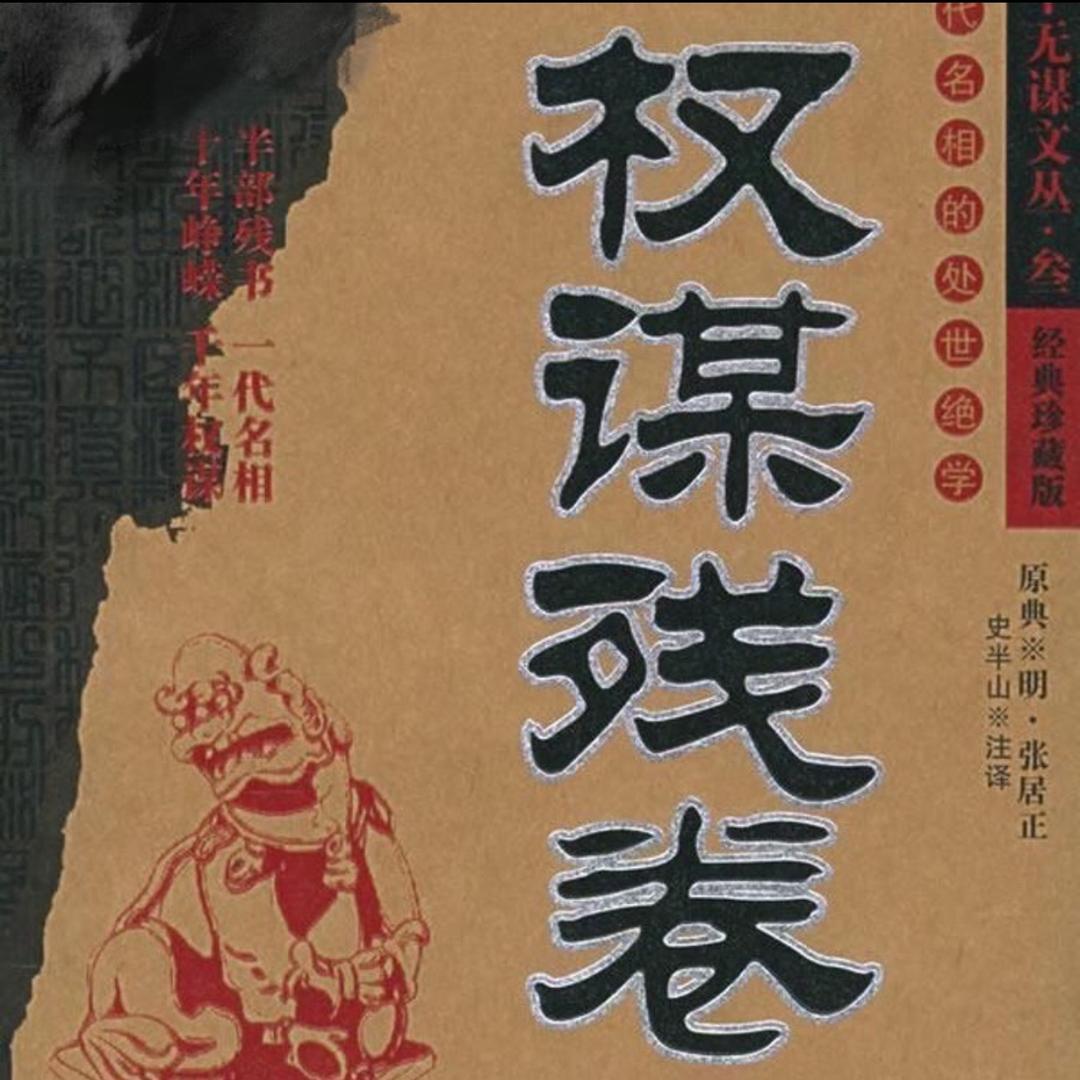 无谋文丛·叁
经典珍藏版
代名相的处世绝学
原典※明·张居正
史半山※注译
权谋残卷
半部残书 一代名相
十年峥嵘 千年权谋